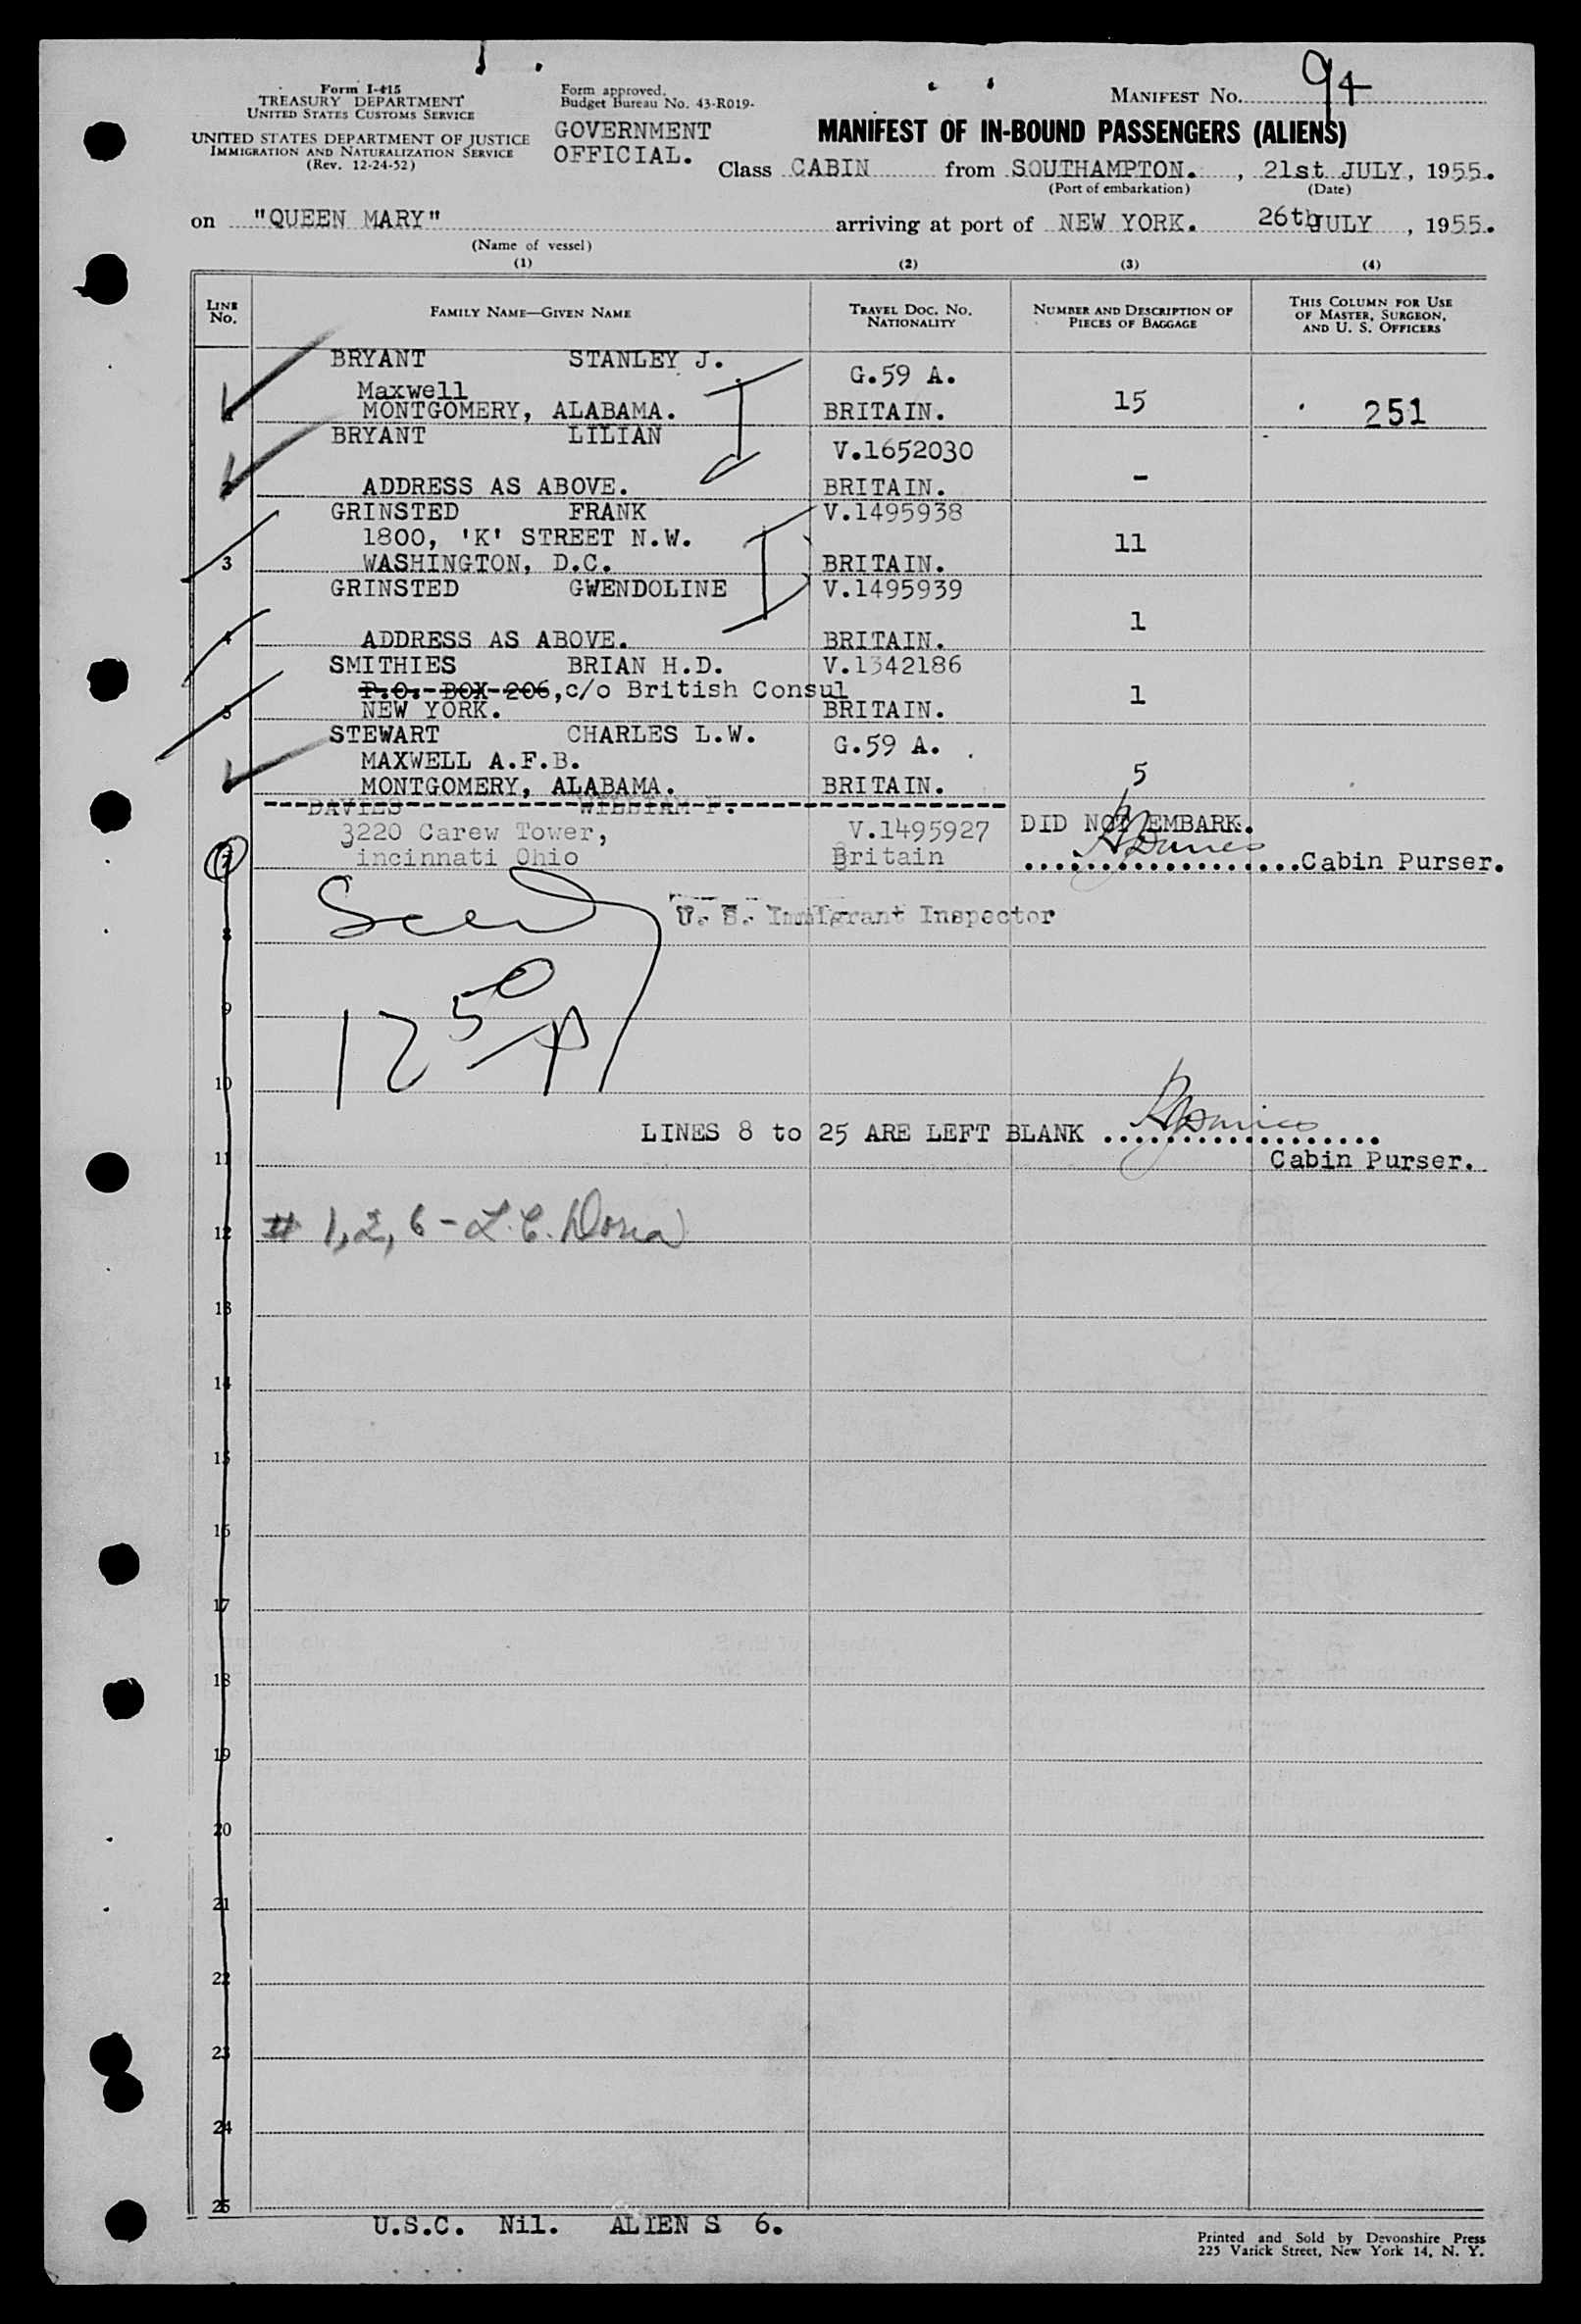 Form I-415
TREASURY DEPARTMENT
UNITED STATES CUSTOMS SERVICE
UNITED STATES DEPARTMENT OF JUSTICE
IMMIGRATION AND NATURALIZATION SERVICE
(Rev. 12-24-52)
Form approved.
Budget Bureau No. 43-R019-
GOVERNMENT
OFFICIAL.
MANIFEST NO. 94
MANIFEST OF IN-BOUND PASSENGERS (ALIENS)
Class CABIN from SOUTHAMPTON. , 21st JULY, 1955.
(Port of embarkation) (Date)
on "QUEEN MARY" arriving at port of NEW YORK. 26th JULY , 1955.
(Name of vessel)
(1) (2) (3) (4)
LINE NO.
FAMILY NAME—GIVEN NAME
TRAVEL DOC. NO. NATIONALITY
NUMBER AND DESCRIPTION OF PIECES OF BAGGAGE
THIS COLUMN FOR USE OF MASTER, SURGEON, AND U. S. OFFICERS
BRYANT STANLEY J.
G.59 A.
Maxwell
15
1 MONTGOMERY, ALABAMA. BRITAIN. 251
BRYANT LILIAN
V.1652030
2 ADDRESS AS ABOVE. BRITAIN. -
GRINSTED FRANK V.1495938
1800, 'K' STREET N.W. 11
3 WASHINGTON, D.C. BRITAIN.
GRINSTED GWENDOLINE V.1495939
1
4 ADDRESS AS ABOVE. BRITAIN.
SMITHIES BRIAN H.D. V.1342186
P.O.-BOX-206,c/o British Consul 1
5 NEW YORK. BRITAIN.
STEWART CHARLES L.W. G.59 A.
MAXWELL A.F.B.
5
6 MONTGOMERY, ALABAMA. BRITAIN.
DAVIES WILLIAM F.
3220 Carew Tower, V.1495927 DID NOT EMBARK.
7 incinnati Ohio Britain Cabin Purser.
U. S. Immigrant Inspector
8
9
12 50
10
LINES 8 to 25 ARE LEFT BLANK
11 Cabin Purser.
12 # 1, 2, 6 - L.C. Doria
13
14
15
16
17
18
19
20
21
22
23
24
25
U.S.C. Nil. ALIEN S 6.
Printed and Sold by Devonshire Press
225 Varick Street, New York 14, N. Y.